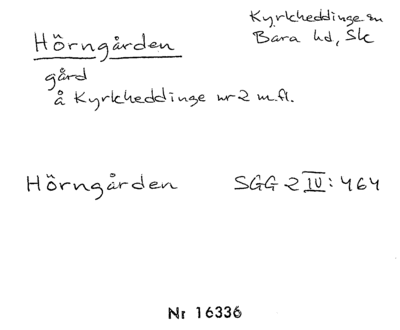 Kyrkheddinge sn
Bara hd, Sk
Hörngården
gård
å Kyrkheddinge nr 2 m.fl.
Hörngården SGG 2 IV: 464
Nr 16336